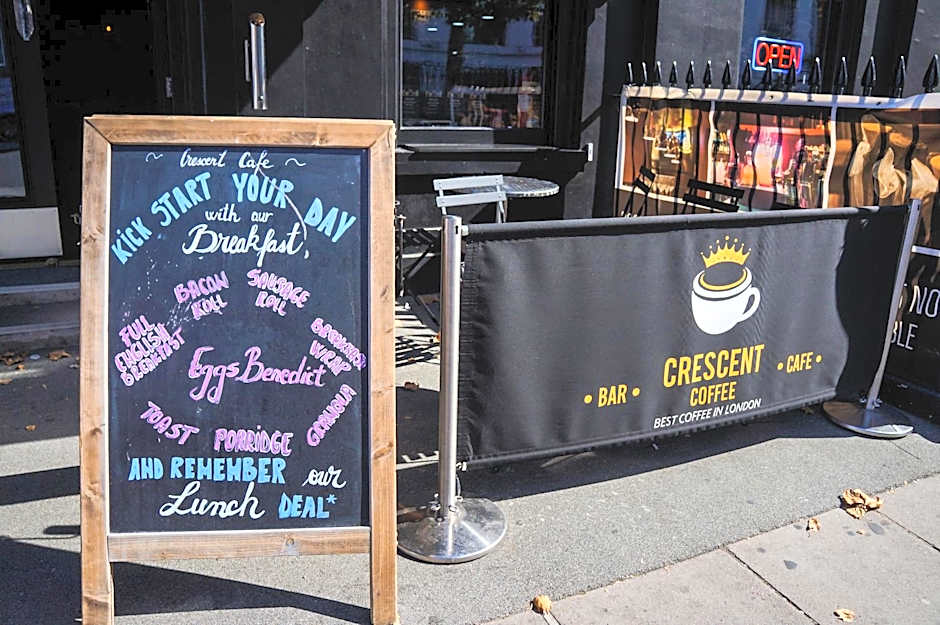 ~ Crescent Cafe ~
KICK START YOUR DAY
with our
Breakfast,
BACON
ROLL
SAUSAGE
ROLL
FULL
ENGLISH
BREAKFAST
BREAKFAST
WRAP
Eggs Benedict
TOAST
PORRIDGE
GRANOLA
AND REMEMBER our
Lunch DEAL*
OPEN
• BAR •
CRESCENT
COFFEE
• CAFE •
BEST COFFEE IN LONDON
NO